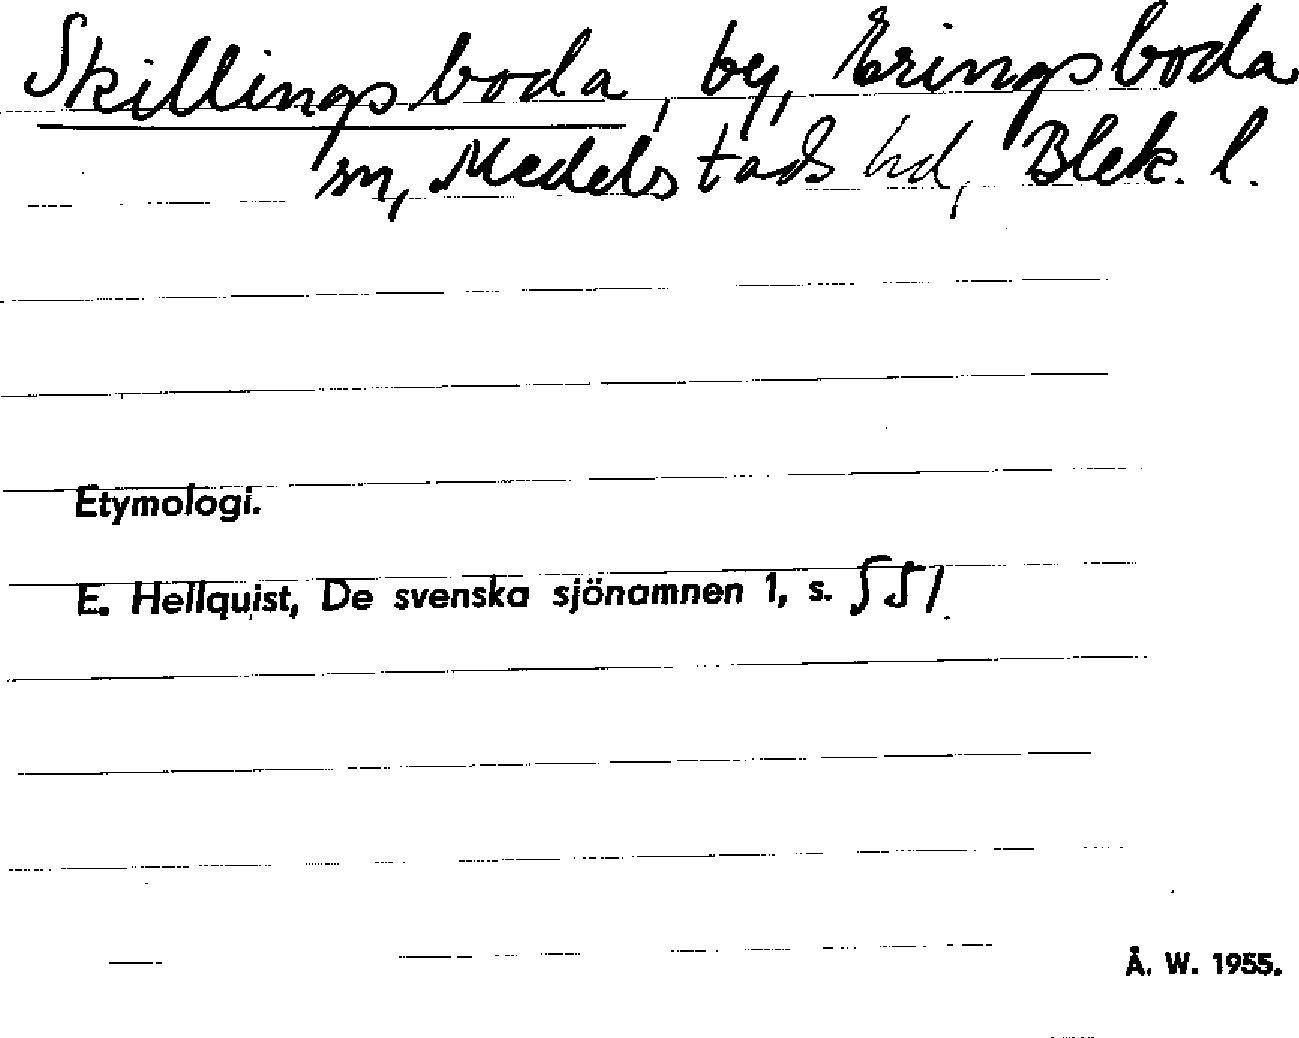 Skillingsboda, by, Eringsboda
sn, Medelstads hd, Blek. l.
Etymologi.
E. Hellquist, De svenska sjönamnen 1, s. 551.
Å. W. 1955.